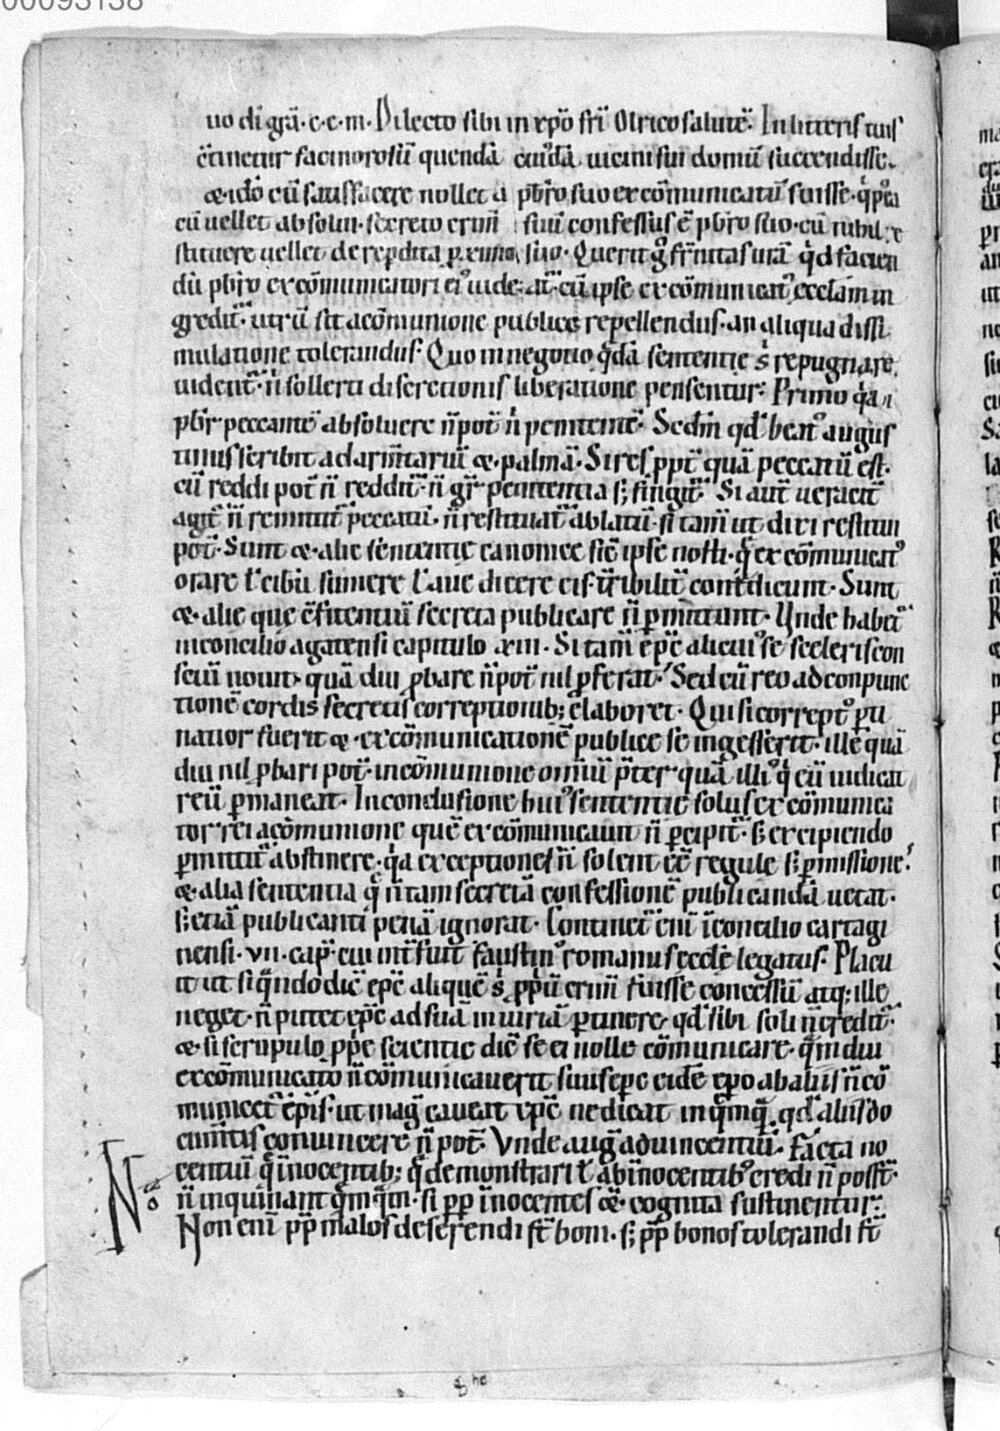 00093138
uo di grã·c·c·m·Dilecto sibi in xp̃o fri Olrico salutẽ. In litteris tuis
c̃tinetur facinorosũ quendã cuidã uicini sui domũ succendisse.
& idõ cũ satisfacere nollet a p̃bro suo excõmunicatũ fuisse·
cũ uellet absolui·secreto crim̃ suũ confessus ẽ p̃bro suo·cũ nihil
stituere uellet de rep̃dita suo·Querit g̊ fr̃nitas urã q̇d facien
dũ p̃bro excõmunicatori ei᾽ uide at̃·cũ ipse excõmunicat᾽ ecclam in
gredit̃·utrũ sit acõmunione publice repellendus·an aliqua dissi
mulatione tolerandus·Quo in negotio q̇dã sententie s̾ repugnare
uident̃·n̾ sollerti discretionis liberatione pensentur: Primo q̇a
p̃br peccantẽ absoluere ñ pot̃ n̾ penitentẽ·Sedm̃ qd̾ beat᾽ augus
tinus scribit ad &·palmã·Si res ppt̃ quã peccatũ est·
cũ reddi pot̃ ñ reddit̃·ñ gr̃ penitentia s; fingit̃·Si aut̃ ueracit̃
agit̃ ñ remittit̃ peccatũ·ñ restituat̃ ablatũ·si tam̃ ut dixi restitui
pot̃·Sunt &·alie sententie canonice sic̃ ipse nosti·q̾ excõmunicat᾽
orare ł cibũ sumere ł aue dicere cont̃dicunt·Sunt
&·alie que c̃fitentiũ secreta publicare ñ p̱mittunt·Unde habet̃
in concilio agatensi capitulo xiii·Si tam̃ ep̃c alicui᾽ se sceleris con
sciũ nouit·quã diu ꝓbare ñ pot̃ nil ꝓferat·Sed cũ reo ad conpunc
tionẽ cordis secretis correptionib; elaboret·Qui si corrept᾽ p̱ti
natior fuerit &·excõmunicationẽ publice se ingesserit·ille quã
diu nil ꝓbari pot̃·in cõmunione omĩũ p̃ter quã illi᾽ q̇ eũ iudicat
reũ p̱maneat·In conclusione hui᾽ sententie solus excõmunica
tor rei acõmunione quẽ excõmunicauit ñ p̱cipit̃·s; excipiendo
p̱mittit̃ abstinere·q̇a exceptiones ñ solent ẽẽ regule s; p̱missione᾽
&·alia sententia q̾ ñ tam secretã confessionẽ publicandã uetat·
s; etiã publicanti penã ignorat·Continet̃ enĩ ĩ concilio cartagi
nensi·vii·cap̃·cui int̃fuit faustin᾽ romanus eccle legatus·Placu
it ut si q̃ndo dic̃ ep̃c aliquẽ s̾ ppĩũ crim̃ fuisse confessũ atq; ille
neget·ñ putet ep̃c ad suã iniuriã p̱tinere qd̾ sibi soli ñ credit̃·
&·si scrupulo pp̃e scientie dic̃ se ei nolle cõmunicare·q̃mdiu
excõmunicato ñ cõmunicauerit suus ep̃c eidẽ ep̃o ab aliis ñ cõ
municet̃ ep̃is·ut mag̾ caueat ep̃c ne dicat in q̃mq̃ qd̾ aliis do
cum̃tis conuincere ñ pot̃·Unde aug̃ ad uincentiũ·Facta no
centiũ q̇ ĩnocentib; q̾ demonstrari ł ab ĩnocentib᾽ credi ñ poss̃t·
ñ inquinant q̃mq̃m·si pp̃ ĩnocentes &·cognita sustinentur:
Non enĩ pp̃ malos deserendi st̃ boni·s; pp̃ bonos tolerandi st̃